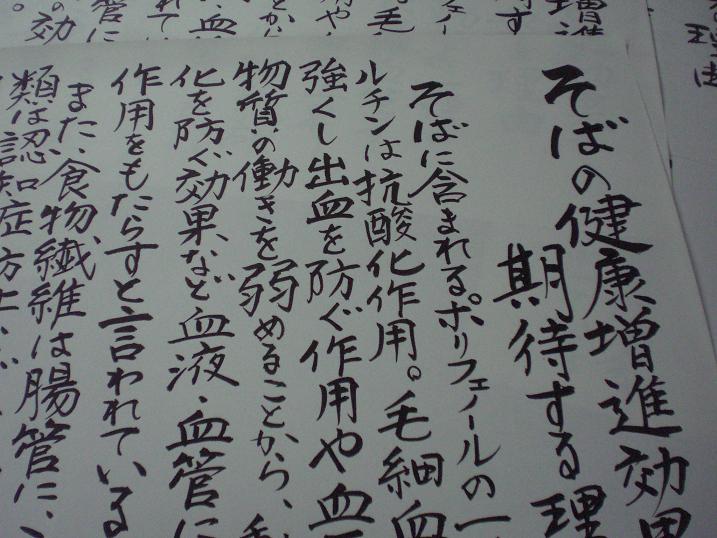 そばの健康増進効果
期待する理
そばに含まれるポリフェノールの一
ルチンは抗酸化作用。毛細血
強くし出血を防ぐ作用や血
物質の働きを弱めることから、
化を防ぐ効果、など血液・血管に
作用をもたらすと言われている
また、食物繊維は腸管に、
類は認知症防止